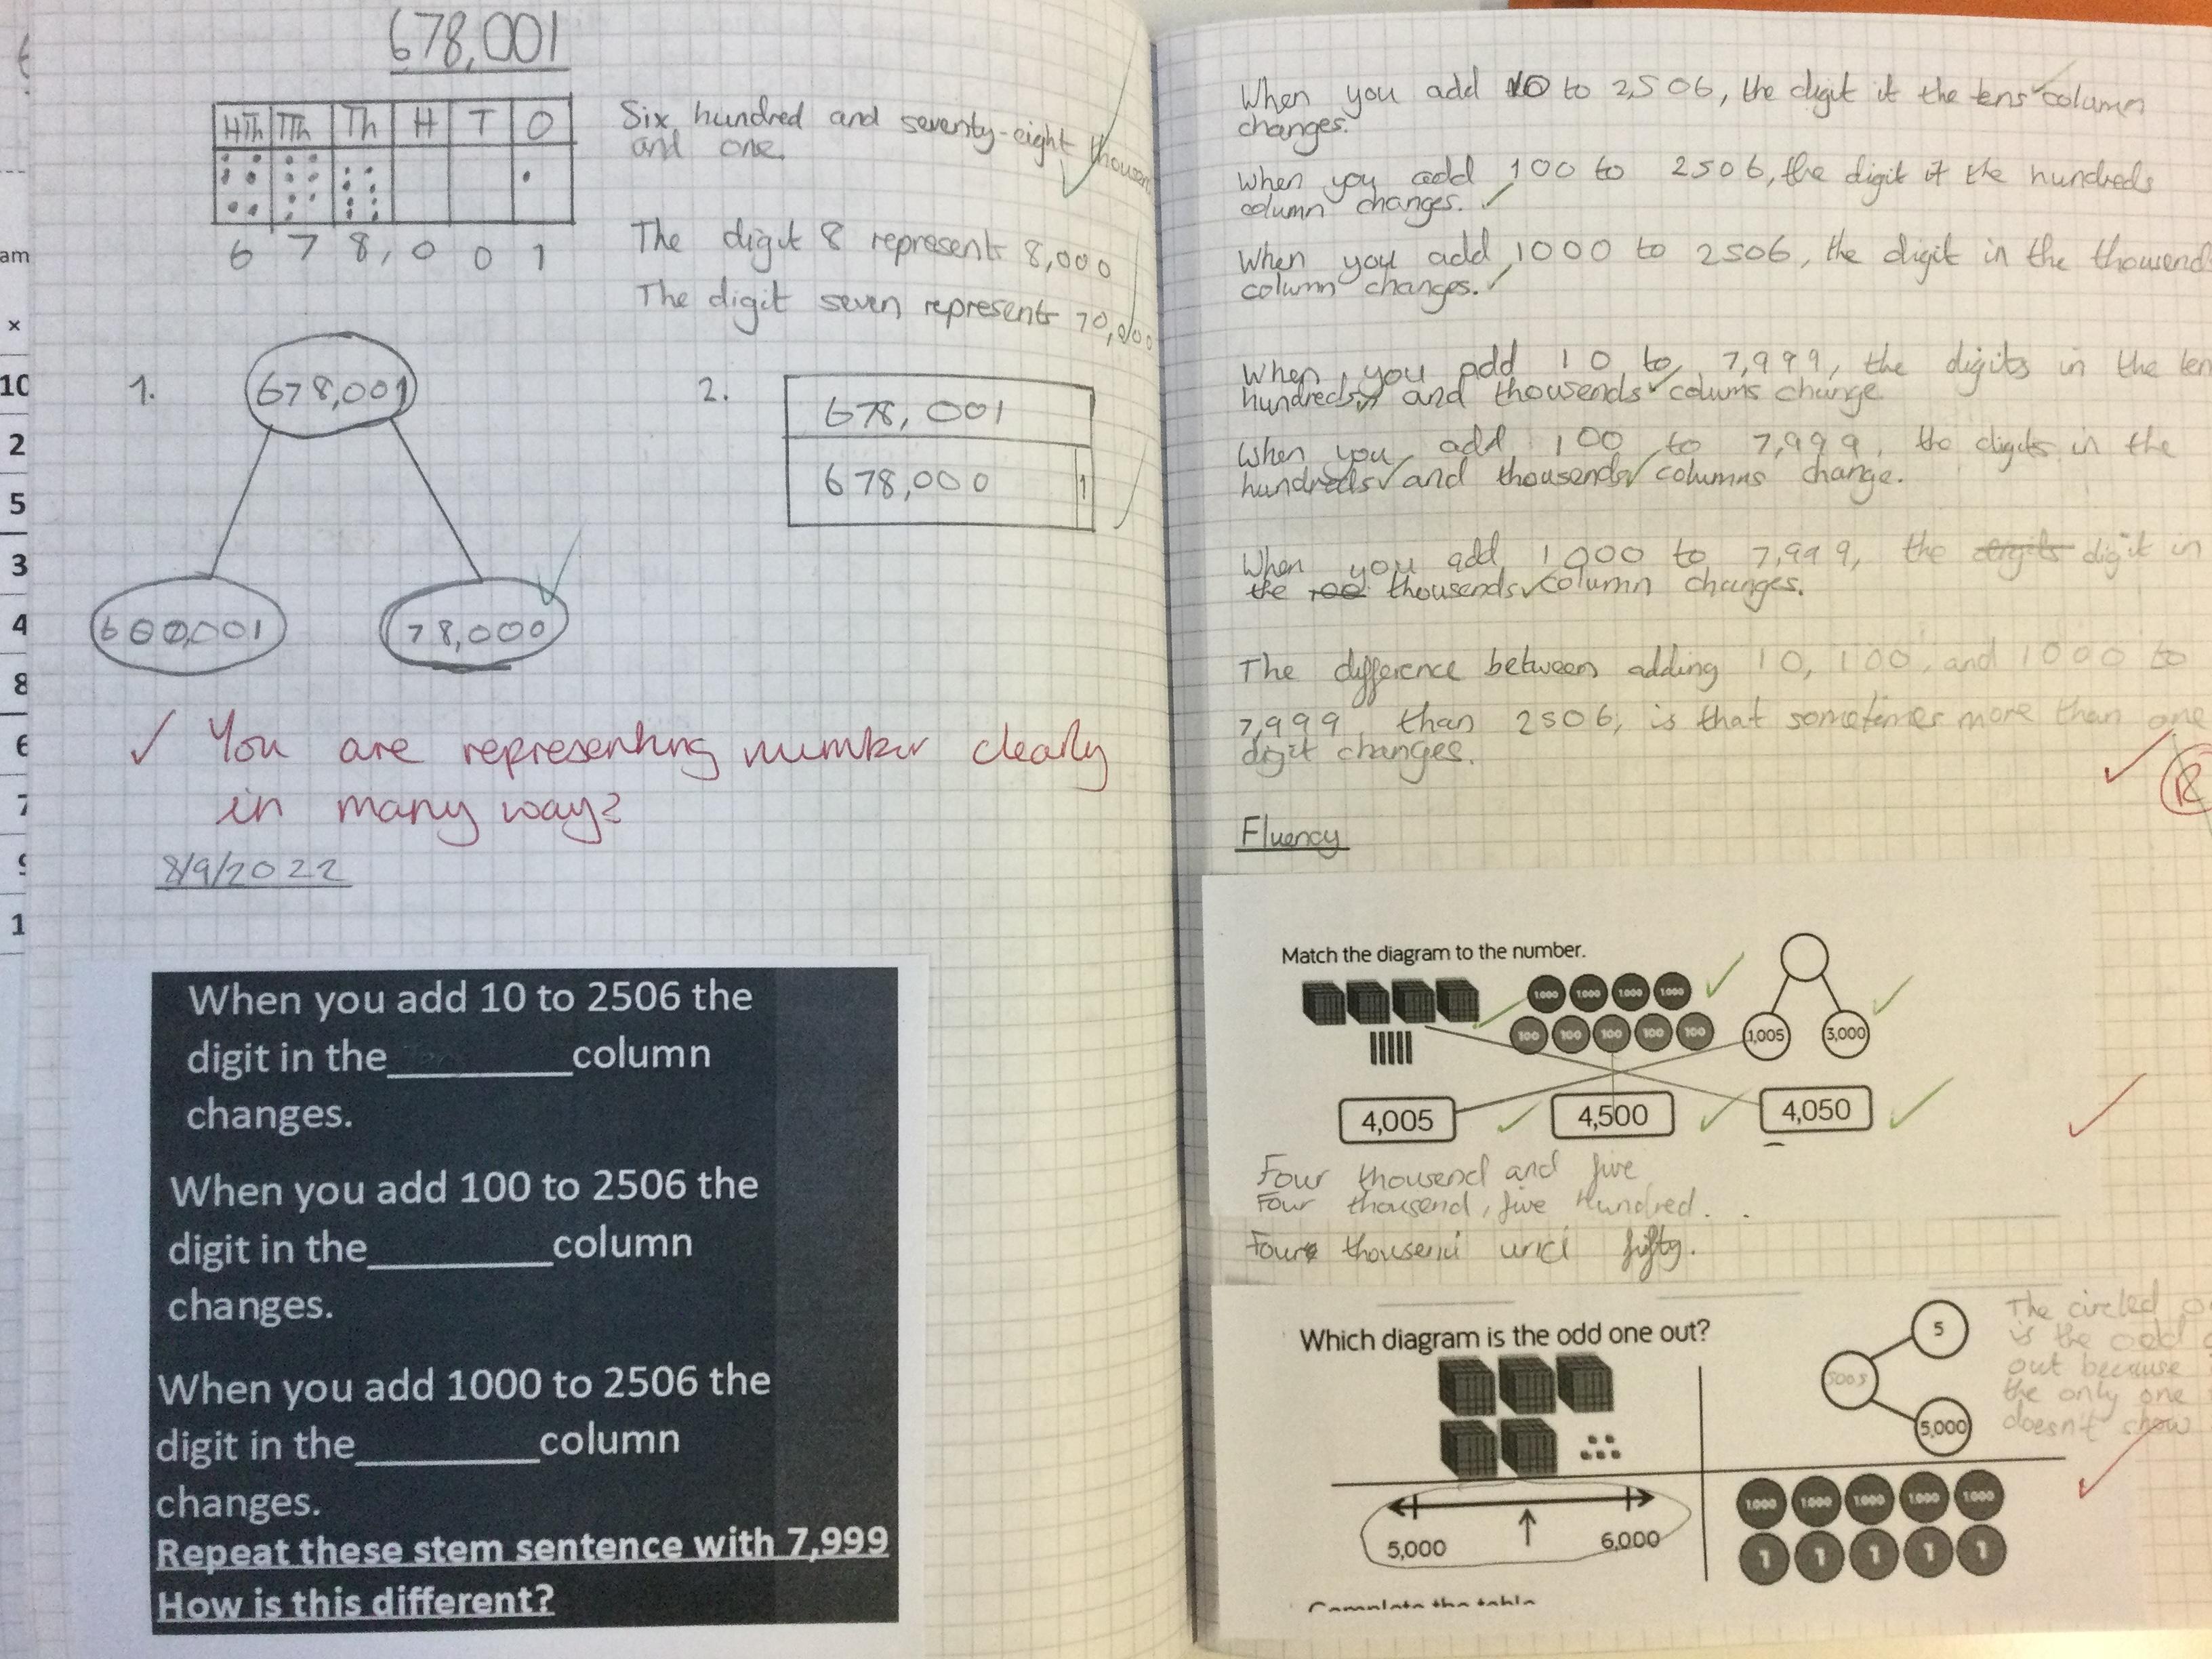 678,001
HTh TTh Th H T O
6 7 8, 0 0 1
Six hundred and seventy-eight
and one.
The digit 8 represents 8,000
The digit seven represents 70,000
1.
678,001
600,001
78,000
2.
678,001
678,000 1
You are representing number clearly
in many ways
8/9/2022
When you add 10 to 2506 the
digit in the__________column
changes.
When you add 100 to 2506 the
digit in the__________column
changes.
When you add 1000 to 2506 the
digit in the__________column
changes.
Repeat these stem sentence with 7,999
How is this different?
am
×
10
2
5
3
4
8
6
7
9
1
When you add 10 to 2,506, the digit it the tens column
changes.
When you add 100 to 2506, the digit it the hundreds
column changes.
When you add 1000 to 2506, the digit in the thousend
column changes.
When you add 10 to 7,999, the digits in the ten
hundreds, and thousends colums change
When you add 100 to 7,999, the digits in the
hundreds and thousends columns change.
When you add 1000 to 7,999, the digits digit in
the thousends column changes.
The difference between adding 10, 100, and 1000 to
7,999 than 2506, is that sometimes more than one
digit changes.
R
Fluency
Match the diagram to the number.
1,000 1,000 1,000 1,000
100 100 100 100 100
1,005 3,000
4,005 4,500 4,050
Four thousend and five
Four thousend, five Hundred.
Four thousend and fifty.
Which diagram is the odd one out?
5
5005
5,000
The circled
is the odd
out because
the only one
doesn't show
5,000 6,000
1,000 1,000 1,000 1,000 1,000
1 1 1 1 1
Complete the table